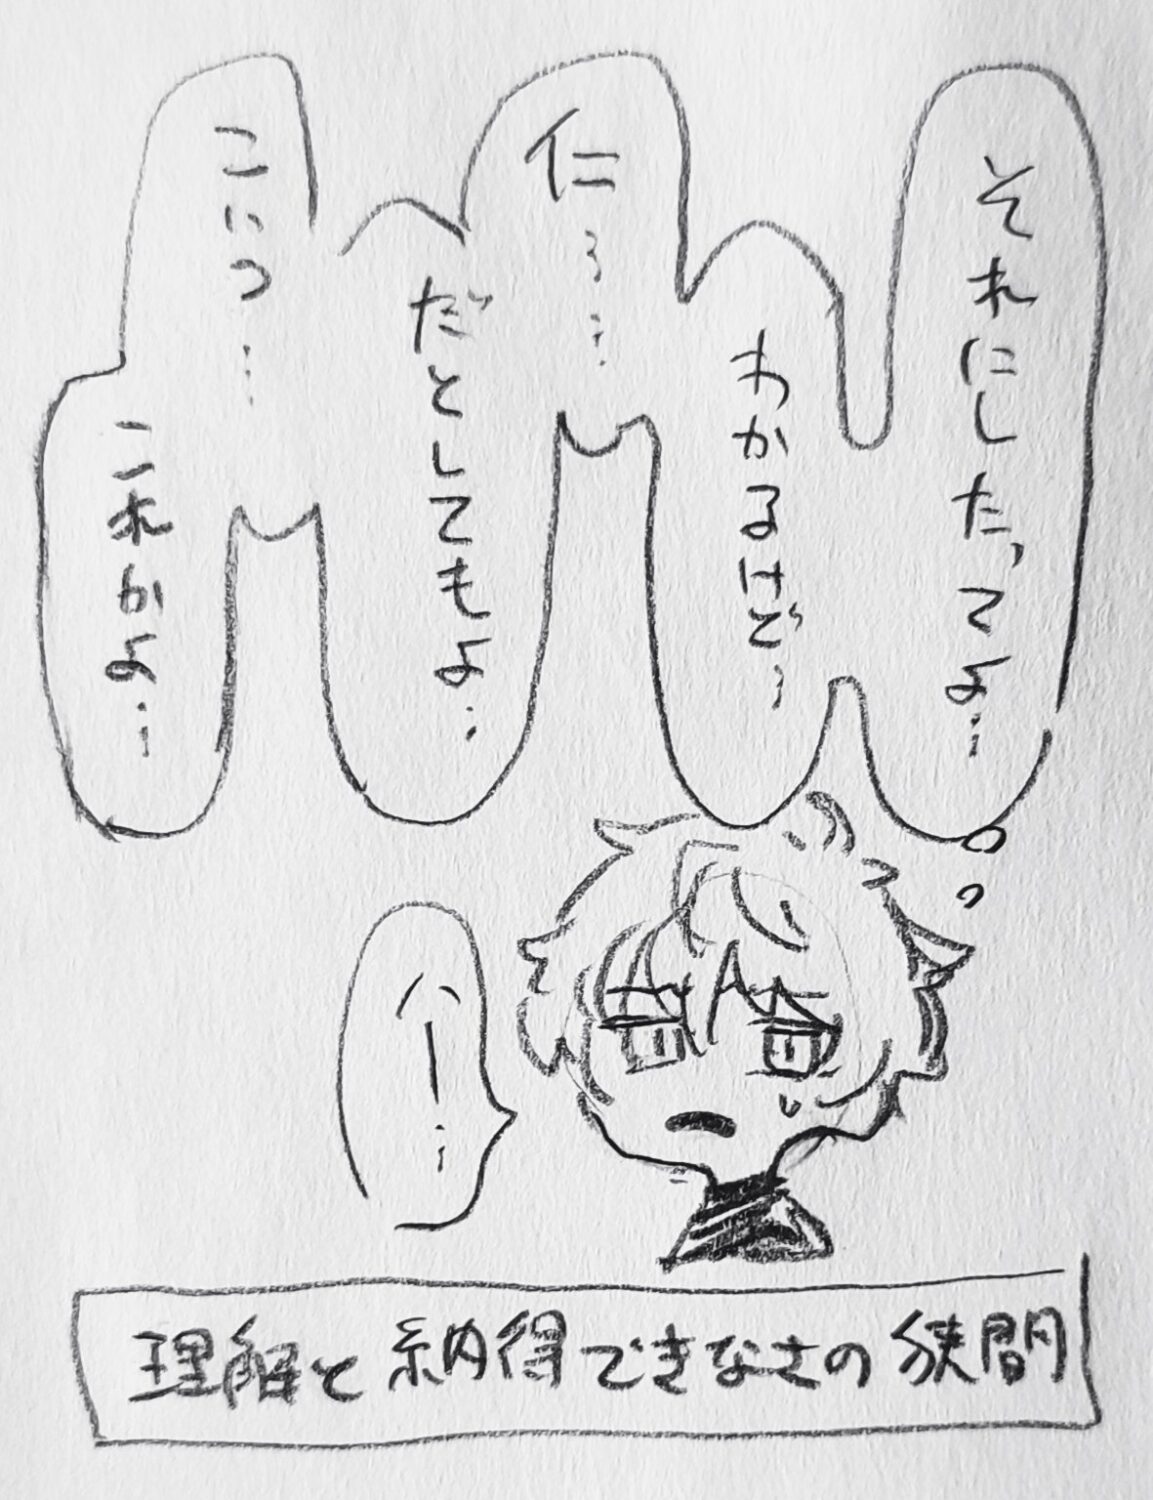 それにしたってよ…
わかるけど…
仁……
だとしてもよ…
こいつ…
これかよ…
ハー…
理解と納得できなさの狭間